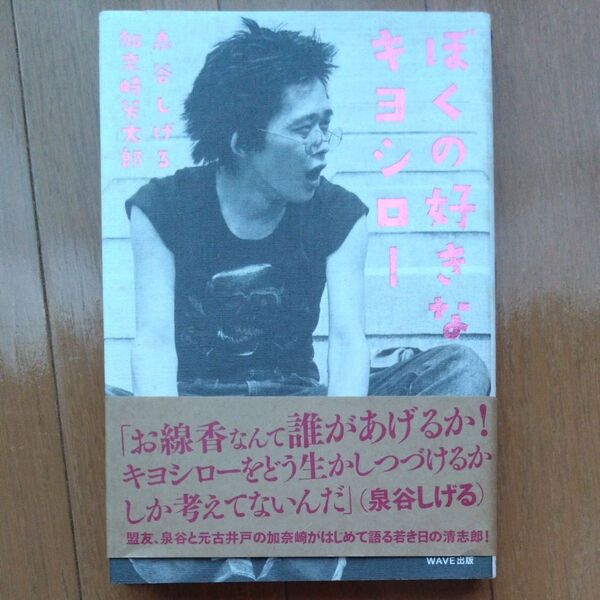 ぼくの好きな
キヨシロー
泉谷しげる
加奈崎芳太郎
「お線香なんて誰があげるか！
キヨシローをどう生かしつづけるか
しか考えてないんだ」（泉谷しげる）
盟友、泉谷と元古井戸の加奈崎がはじめて語る若き日の清志郎！
WAVE出版